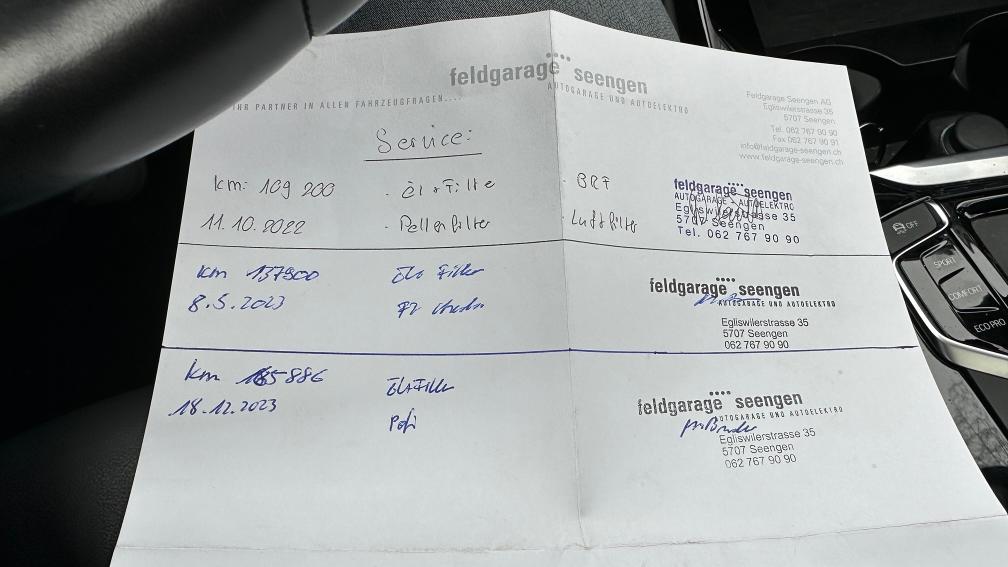 feldgarage seengen
AUTOGARAGE UND AUTOELEKTRO
IHR PARTNER IN ALLEN FAHRZEUGFRAGEN....
Feldgarage Seengen AG
Egliswilerstrasse 35
5707 Seengen
Tel. 062 767 90 90
Fax 062 767 90 91
info@feldgarage-seengen.ch
www.feldgarage-seengen.ch
Service:
km: 109 200 - Öl + Filte - BRF
11.10.2022 - Pollenfilter - Luftfilter
feldgarage seengen
AUTOGARAGE - AUTOELEKTRO
Egliswilerstrasse 35
5707 Seengen
Tel. 062 767 90 90
km 137900 Öl+ Filter
8.5.2023
feldgarage seengen
AUTOGARAGE UND AUTOELEKTRO
Egliswilerstrasse 35
5707 Seengen
062 767 90 90
km 165886 Öl+Filter
18.12.2023
feldgarage seengen
AUTOGARAGE UND AUTOELEKTRO
Egliswilerstrasse 35
5707 Seengen
062 767 90 90
OFF
SPORT
COMFORT
ECO PRO